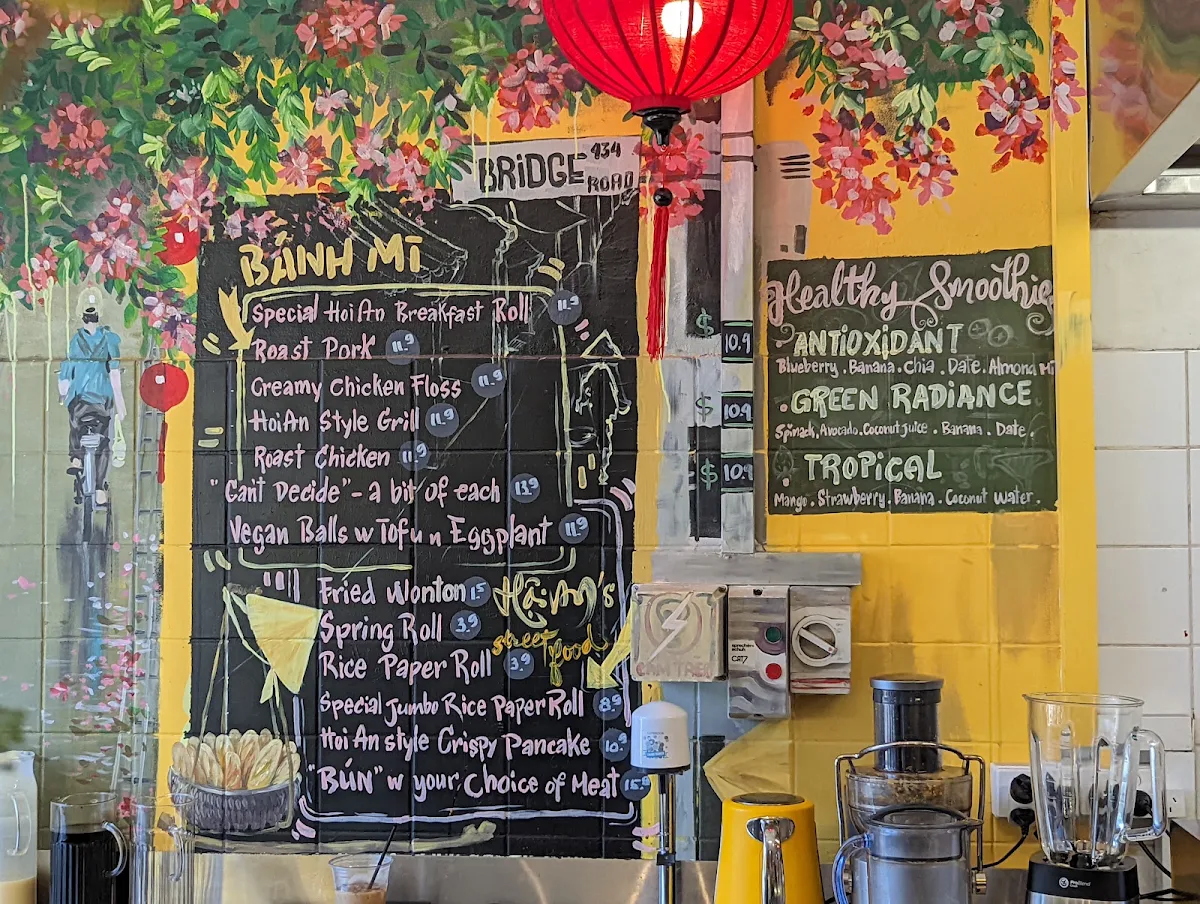 BRiDGE 434 ROAD
BÁNH MÌ
Special Hoi An Breakfast Roll 11.9
Roast Pork 11.9
Creamy Chicken Floss 11.9
Hoi An Style Grill 11.9
Roast Chicken 11.9
"Can't Decide" - a bit of each 13.9
Vegan Balls w Tofu n Eggplant 11.9
Fried Wonton 1.5
Spring Roll 3.9
Rice Paper Roll 3.9
Special Jumbo Rice Paper Roll 8.9
Hoi An style Crispy Pancake
"BÚN" w your Choice of Meat
street food
Healthy Smoothie
ANTiOXiDANT
$ 10.9
Blueberry . Banana . Chia . Date . Almond Mi
GREEN RADiANCE
$ 10.9
Spinack, Avocado. Coconut juice . Banana . Date .
TROPiCAL
$ 10.9
Mango . Strawberry . Banana . Coconut water .
CAT7
ProBlend